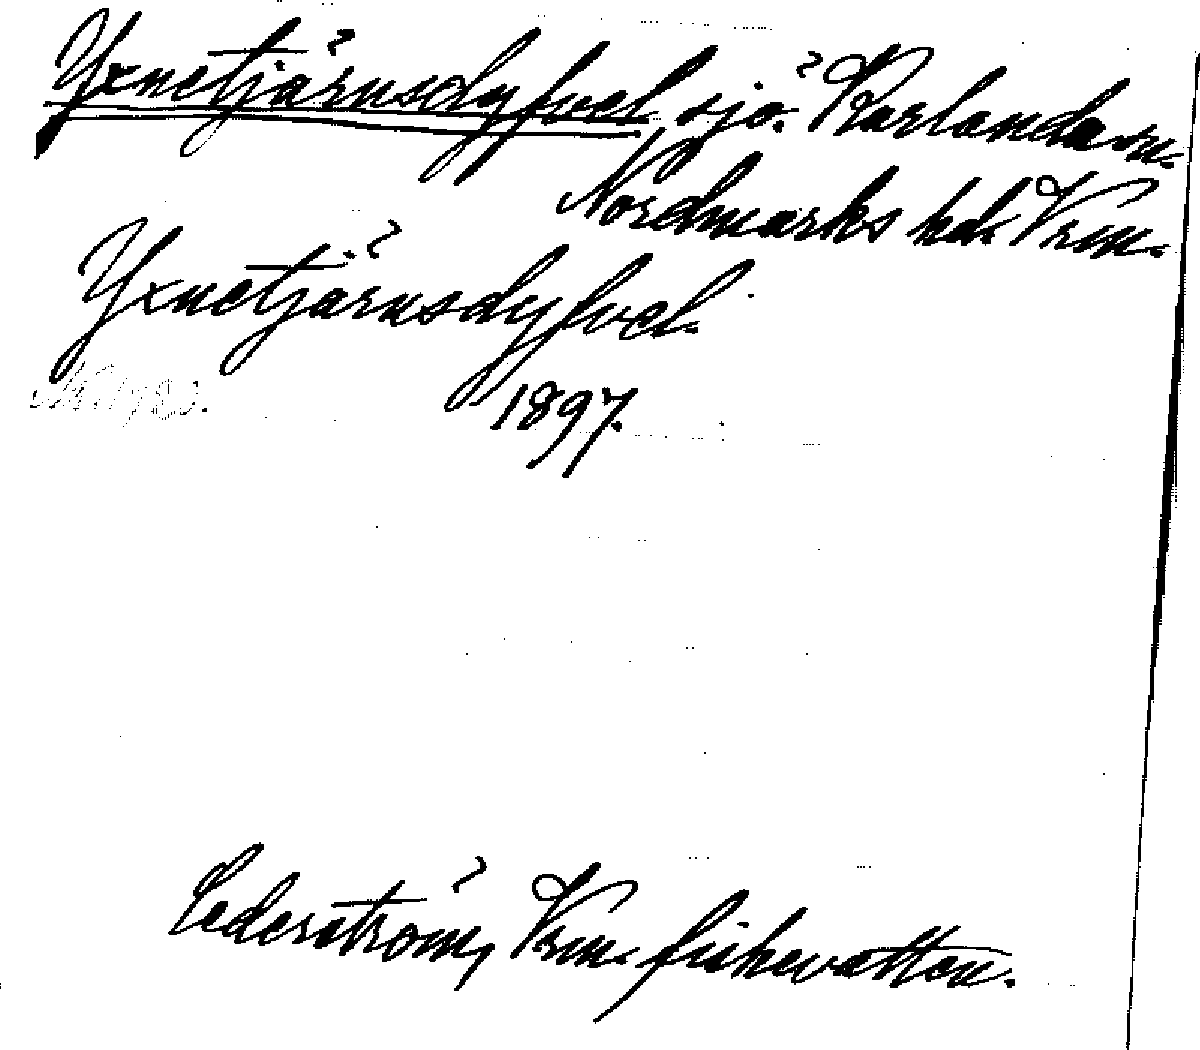 Yxnetjärnsdyfvel, sjö. Karlanda sn.
Nordmarks hd. Vrm.
Yxnetjärnsdyfvel.
1897.
Cederström, Vrm. fiskevatten.